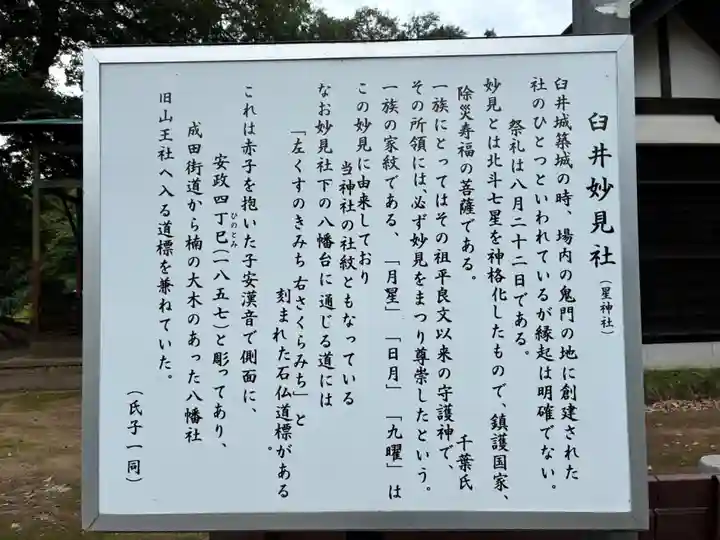 臼井妙見社(星神社)
臼井城築城の時、場内の鬼門の地に創建された
社のひとつといわれているが縁起は明確でない。
祭礼は八月二十二日である。
妙見とは北斗七星を神格化したもので、鎮護国家、
除災寿福の菩薩である。 千葉氏
一族にとってはその祖平良文以来の守護神で、
その所領には、必ず妙見をまつり尊崇したという。
一族の家紋である、「月星」「日月」「九曜」は
この妙見に由来しており
当神社の社紋ともなっている
なお妙見社下の八幡台に通じる道には
「左くすのきみち 右さくらみち」と
刻まれた石仏道標がある。
これは赤子を抱いた子安漢音で側面に、
安政四丁巳(一八五七)と彫ってあり、
ひのとみ
成田街道から楠の大木のあった八幡社
旧山王社へ入る道標を兼ねていた。
(氏子一同)